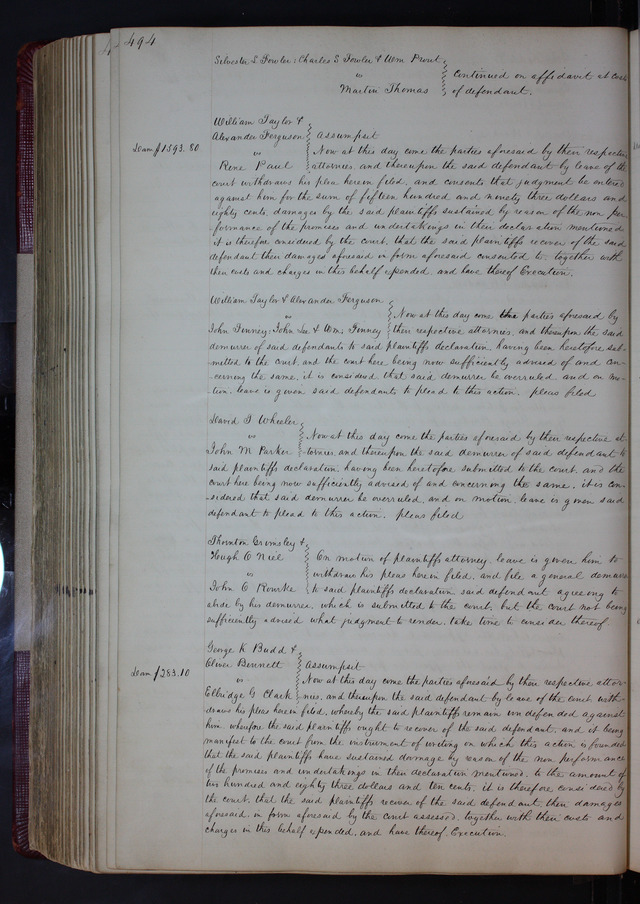 494
Silvester S Fowler: Charles S Fowler & Wm Prout
vs
Martin Thomas
Continued on affidavit at cost
of defendant.
William Taylor &
Alexander Ferguson
vs
Rene Paul
Dam $1593.80
Assumpsit
Now at this day come the parties aforesaid by their respective
attornies, and thereupon the said defendant by leave of the
court withdraws his plea herein filed, and consents that judgment be entered
against him for the sum of fifteen hundred and ninety three dollars and
eighty cents, damages by the said plaintiffs sustained by reason of the non per
formance of the promises and undertakings in their declaration mentioned
it is therefore considered by the court, that the said plaintiffs recover of the said
defendant their damages aforesaid in form aforesaid consented to, together with
their costs and charges in this behalf expended and have thereof Execution.
William Taylor & Alexander Ferguson
vs
John Finney: John Lee & Wm. Finney
Now at this day come the parties aforesaid by
their respective attornies, and thereupon the said
demurrer of said defendants to said plaintiffs declaration, having been heretofore sub-
mitted to the court, and the court here being now sufficiently advised of and con-
cerning the same, it is considered that said demurrer be overruled and on mo-
tion, leave is given said defendants to plead to this action. pleas filed
David T Wheeler
vs
John M Parker
Now at this day come the parties aforesaid by their respective at-
tornies and thereupon the said demurrer of said defendant to
said plaintiffs declaration, having been heretofore submitted to the court, and the
court here being now sufficiently advised of and concerning the same, it is con-
sidered that said demurrer be overruled, and on motion, leave is given said
defendant to plead to this action. pleas filed
Thornton Grimsley &
Hugh O Neil
vs
John O Rourke
On motion of plaintiffs attorney, leave is given him to
withdraw his pleas herein filed, and file a general demurrer
to said plaintiffs declaration, said defendant agreeing to
abide by his demurrer, which is submitted to the court; but the court not being
sufficiently advised what judgment to render, take time to consider thereof
George K Budd &
Oliver Bennett
vs
Elbridge G Clark
Dam $283.10
Assumpsit
Now at this day come the parties aforesaid by their respective attor-
nies, and thereupon the said defendant by leave of the court with-
draws his pleas herein filed, whereby the said plaintiffs remain undefended against
him wherefore the said plaintiffs ought to recover of the said defendant, and it being
manifest to the court from the instrument of writing on which this action is founded
that the said plaintiffs have sustained damage by reason of the non performance
of the promises and undertakings in their declaration mentioned, to the amount of
two hundred and eighty three dollars and ten cents, it is therefore considered by
the court, that the said plaintiffs recover of the said defendant, their damages
aforesaid, in form aforesaid by the court assessed, together with their costs and
charges in this behalf expended, and have thereof Execution.